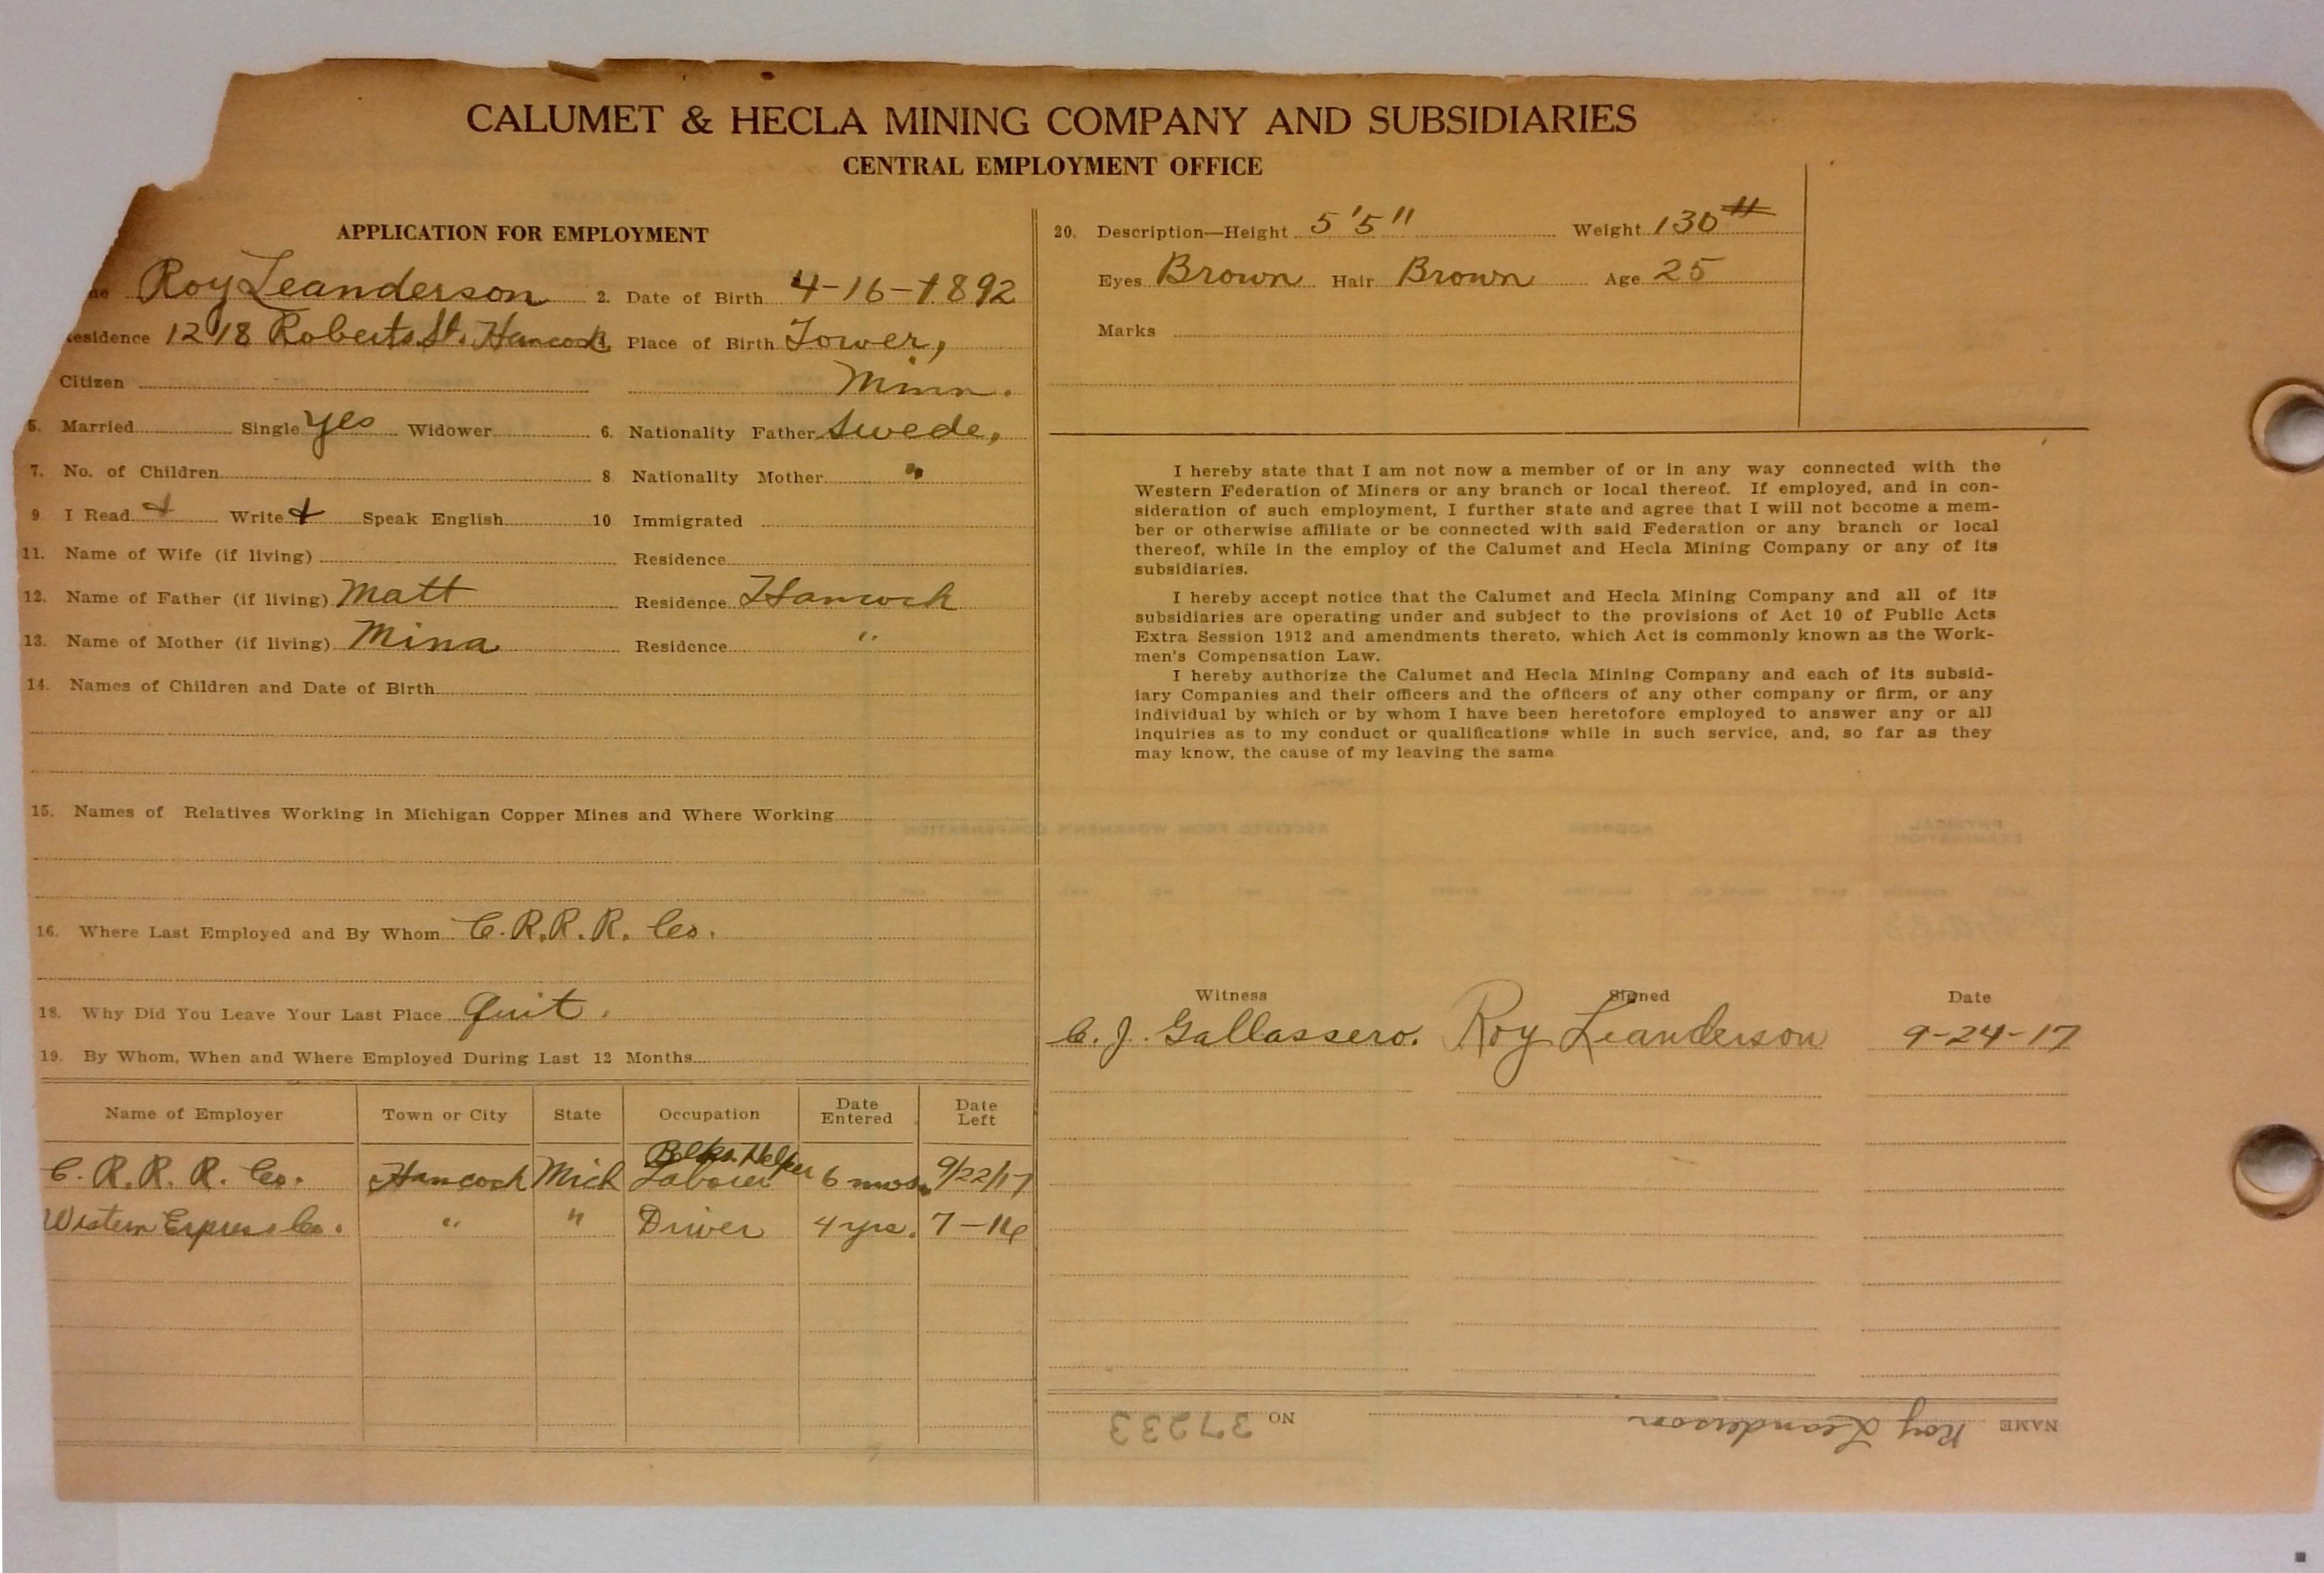 CALUMET & HECLA MINING COMPANY AND SUBSIDIARIES
CENTRAL EMPLOYMENT OFFICE
APPLICATION FOR EMPLOYMENT
Roy Leanderson 2. Date of Birth 4-16-1892
Residence 1218 Roberts St. Hancock Place of Birth Tower,
Citizen Minn.
5. Married Single yes Widower 6. Nationality Father Swede,
7. No. of Children 8 Nationality Mother "
9. I Read + Write + Speak English 10 Immigrated
11. Name of Wife (if living) Residence
12. Name of Father (if living) Matt Residence Hancock
13. Name of Mother (if living) Mina Residence "
14. Names of Children and Date of Birth
15. Names of Relatives Working in Michigan Copper Mines and Where Working
16. Where Last Employed and By Whom C. R. R. R. Co.
18. Why Did You Leave Your Last Place Quit.
19. By Whom, When and Where Employed During Last 12 Months
Name of Employer Town or City State Occupation Date Entered Date Left
Helper
C. R. R. R. Co. Hancock Mich Laborer 6 mos. 9/22/17
Western Express Co. " " Driver 4 yrs. 7-16
20. Description—Height 5'5" Weight 130#
Eyes Brown Hair Brown Age 25
Marks
I hereby state that I am not now a member of or in any way connected with the
Western Federation of Miners or any branch or local thereof. If employed, and in con-
sideration of such employment, I further state and agree that I will not become a mem-
ber or otherwise affiliate or be connected with said Federation or any branch or local
thereof, while in the employ of the Calumet and Hecla Mining Company or any of its
subsidiaries.
I hereby accept notice that the Calumet and Hecla Mining Company and all of its
subsidiaries are operating under and subject to the provisions of Act 10 of Public Acts
Extra Session 1912 and amendments thereto, which Act is commonly known as the Work-
men's Compensation Law.
I hereby authorize the Calumet and Hecla Mining Company and each of its subsid-
iary Companies and their officers and the officers of any other company or firm, or any
individual by which or by whom I have been heretofore employed to answer any or all
inquiries as to my conduct or qualifications while in such service, and, so far as they
may know, the cause of my leaving the same
Witness Signed Date
C. J. Gallassero. Roy Leanderson 9-24-17
NAME Roy Leanderson NO 37233